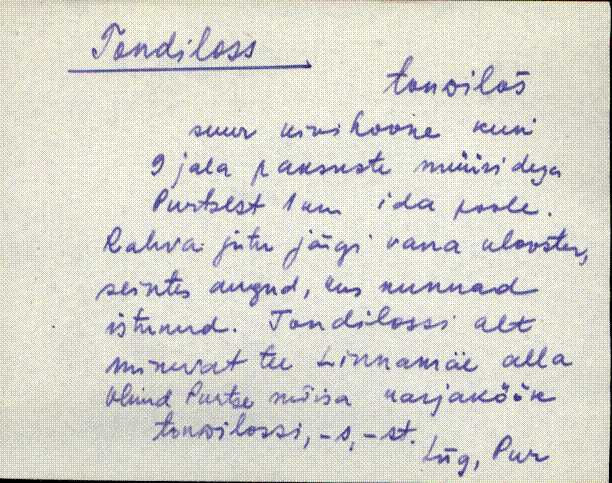 Tondiloss
tonᴅiloś
suur kivihoone kuni
9 jala paksuste müüridega
Purtsest 1 km ida poole.
Rahva jutu järgi vana klooster,
seintes augud, kus nunnad
istunud. Tondilossi alt
minevat tee Linnamäe alla
Olnud Purtse mõisa karjaköök
tonᴅilossi, -s, -st.
Lüg, Pur